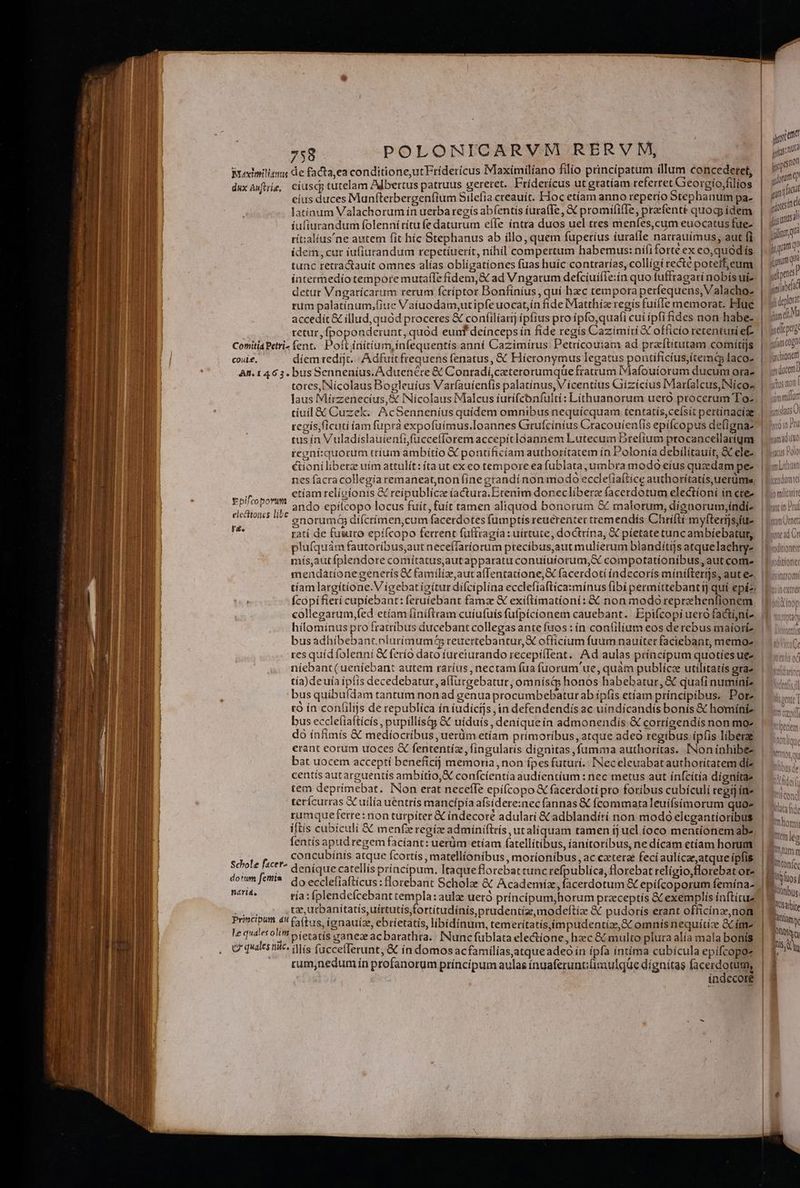 758 POLONICARVM RERVM,
Maximilianus de facta, ea conditione, ut Fridericus Maximiliano filio principatum illum concederet,
dux Austriæ, eiusq; tutelam Albertus patruus gereret. Fridericus ut gratiam referret Georgio, filios
eius duces Munsterbergensium Silesia creauit. Hoc etiam anno reperio Stephanum pa-
latinum Valachorum in uerba regis absentis iurasse, & promisisse, præsenti quoq; idem
iusiurandum solenni ritu se daturum esse intra duos uel tres menses, cum euocatus fue-
rit: alius'ne autem sit hic Stephanus ab illo, quem superius iurasse narrauimus, aut si
idem, cur iusiurandum repetiuerit, nihil compertum habemus: nisi forte ex eo, quòd is
tunc retractauit omnes alias obligationes suas huic contrarias, colligi rectè potest, eum
intermedio tempore mutasse fidem, & ad Vngarum desciuisse: in quo suffragari nobis ui-
detur Vngaricarum rerum scriptor Bonfinius, qui hæc tempora persequens, Valacho-
rum palatinum, siue Vaiuodam, ut ipse uocat, in fide Matthiæ regis fuisse memorat. Huc
accedit & illud, quòd proceres & consiliarij ipsius pro ipso, quasi cui ipsi fides non habe-
retur, spoponderunt, quòd eum deinceps in fide regis Cazimiri & officio retenturi es-
Comitia Petri- sent. Post initium, insequentis anni Cazimirus Petricouiam ad præstitutam comitijs
couiæ. diem redijt. Adfuit frequens senatus, & Hieronymus legatus pontificius, itemq; Iaco-
An. 1463. bus Senneniüs. Aduenêre & Conradi, cæterorumqúe fratrum Masouiorum ducum ora-
tores, Nicolaus Bogleuius Varsauiensis palatinus, Vicentius Gizicius Marsalcus, Nico-
laus Mirzenecius, & Nicolaus Malcus iurisconsulti: Lithuanorum uerò procerum To-
tiuil & Cuzek. Ac Senneniüs quidem omnibus nequicquam tentatis, cessit pertinaciæ
regis, sicuti iam suprà exposuimus. Ioannes Grusciniüs Cracouiensis episcopus designa-
tus in Vuladislauiensi, successorem accepit Ioannem Lutecum Bresium procancellarium
regni: quorum trium ambitio & pontificiam authoritatem in Polonia debilitauit, & ele-
ctioni liberæ uim attulit: ita ut ex eo tempore ea sublata, umbra modò eius quædam pe-
nes sacra collegia remaneat, non sine grandi non modò ecclesiasticę authoritatis, uerúm-
etiam religionis & reipublicæ iactura. Etenim donec liberæ sacerdotum electioni in cre-
Episcoporum ando episcopo locus fuit, fuit tamen aliquod bonorum & malorum, dignorum, indi-
electiones libe gnorumq; discrimen, cum sacerdotes sumptis reuerenter tremendis Christi mysterijs, iu-
ræ. rati de futuro episcopo ferrent suffragia: uirtute, doctrina, & pietate tunc ambiebatur,
plusquàm fautoribus, aut necessariorum precibus, aut mulierum blanditijs atque lachry-
mis, aut splendore comitatus, aut apparatu conuiuiorum, & compotationibus, aut com-
mendatione generis & familiæ, aut assentatione, & sacerdoti indecoris ministerijs, aut e-
tiam largitione. Vigebat igitur disciplina ecclesiastica: minus sibi permittebant ij qui epi-
scopi fieri cupiebant: seruiebant famæ & existimationi: & non modò reprehensionem
collegarum, sed etiam sinistram cuiusuis suspicionem cauebant. Episcopi uerò facti, ni-
hilominus pro fratribus ducebant collegas ante suos: in consilium eos de rebus maiori-
bus adhibebant plurimumq; reuertebantur, & officium suum nauiter faciebant, memo-
res quid solenni & serio dato iureiurando recepissent. Ad aulas principum quoties ue-
niebant (ueniebant autem rarius, nec tam sua suorum'ue, quàm publicæ utilitatis gra-
tia) de uia ipsis decedebatur, assurgebatur, omnisq; honos habebatur, & quasi numini-
bus quibusdam tantum non ad genua procumbebatur ab ipsis etiam principibus. Por-
rò in consilijs de republica in iudicijs, in defendendis ac uindicandis bonis & homini-
bus ecclesiasticis, pupillisq; & uiduis, denique in admonendis & corrigendis non mo-
dò infimis & mediocribus, uerùm etiam primoribus, atque adeò regibus ipsis liberæ
erant eorum uoces & sententiæ, singularis dignitas, summa authoritas. Non inhibe-
bat uocem accepti beneficij memoria, non spes futuri. Nec eleuabat authoritatem di-
centis aut arguentis ambitio, & conscientia audientium: nec metus aut inscitia dignita-
tem deprimebat. Non erat necesse episcopo & sacerdoti pro foribus cubiculi regij in-
ter scurras & uilia uentris mancipia assidere: nec sannas & scommata leuissimorum quo-
rumque ferre: non turpiter & indecorè adulari & adblandiri non modò elegantioribus
istis cubiculi & mensæ regiæ administris, ut aliquam tamen ij uel ioco mentionem ab-
sentis apud regem faciant: uerùm etiam satellitibus, ianitoribus, ne dicam etiam horum
concubinis atque scortis, matellionibus, morionibus, ac cæteræ feci aulicæ, atque ipsis
Scholæ sacer- denique catellis principum. Itaque florebat tunc respublica, florebat religio, florebat or-
dotum semi- do ecclesiasticus: florebant Scholæ & Academiæ, sacerdotum & episcoporum semina-
naria. ria: splendescebant templa: aulæ uerò principum, horum præceptis & exemplis institu-
tæ, urbanitatis, uirtutis, fortitudinis, prudentiæ, modestiæ & pudoris erant officinæ, non
Principum au fastus, ignauiæ, ebrietatis, libidinum, temeritatis, impudentiæ, & omnis nequitiæ & im-
læ quales olim pietatis ganeæ ac barathra. Nunc sublata electione, hæc & multo plura alia mala bonis
& quales nūc. illis successerunt, & in domos ac familias, atque adeo in ipsa intima cubicula episcopo-
rum, nedum in profanorum principum aulas inuaserunt: simulqúe dignitas sacerdotum,
indecorè